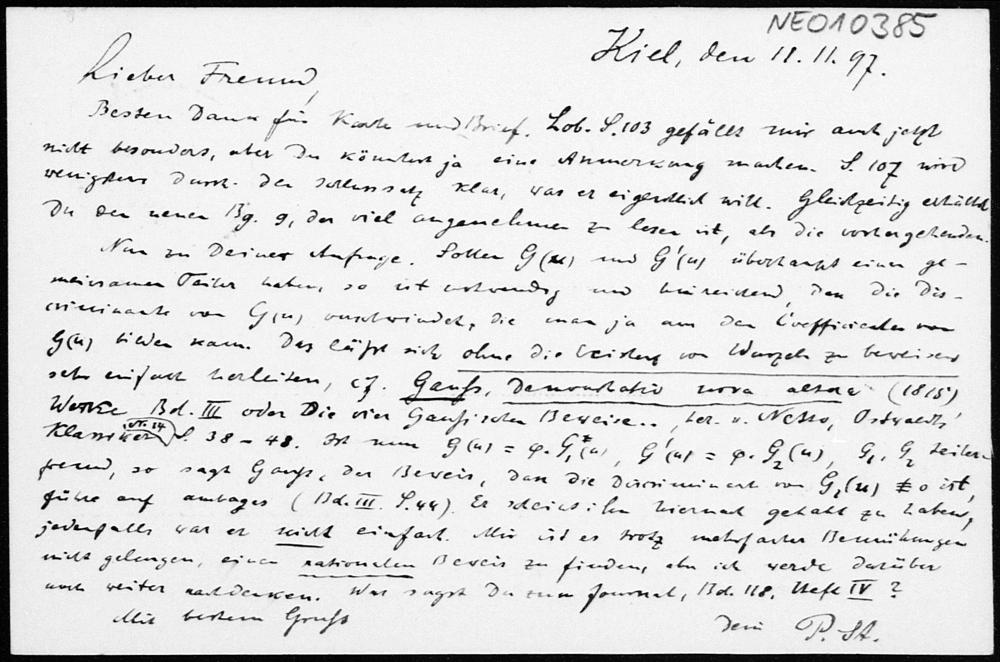 NEO10385
Kiel, den 11.11.97.
Lieber Freund,
Besten Dank für Karte und Brief. Lob. S. 103 gefällt mir auch jetzt
nicht besonders, aber Du könntest ja eine Anmerkung machen. S. 107 wird
wenigstens durch den Schlusssatz klar, was er eigentlich will. Gleichzeitig erhältst
Du den neuen Bg. 9, der viel angenehmer zu lesen ist, als die vorhergehenden.
Nun zu Deiner Anfrage. Sollen G(u) und G'(u) überhaupt einen ge-
meinsamen Teiler haben, so ist notwendig und hinreichend, dass die Dis-
criminante von G(u) verschwindet, die man ja aus den Coefficienten von
G(u) bilden kann. Das läßt sich ohne die Existenz von Wurzeln zu beweisen
sehr einfach herleiten, cf. Gauß, Demonstratio nova altera (1815)
Werke Bd. III oder Die vier Gaußischen Beweise.., her. v. Netto, Ostwalds
Klassiker (Nr. 14) S. 38-48. Ist nun G(u) = φ.G₁(u), G'(u) = φ.G₂(u), G₁, G₂ teiler-
fremd, so sagt Gauß, der Beweis, dass die Discriminante von G₁(u) ≠ 0 ist,
führe auf ambages (Bd. III. S. 44). Er scheint ihn hiernach gehabt zu haben,
jedenfalls war er nicht einfach. Mir ist es trotz mehrfacher Bemühungen
nicht gelungen, einen rationalen Beweis zu finden, aber ich werde darüber
noch weiter nachdenken. Was sagst Du zum Journal, Bd. 118, Heft IV?
Mit bestem Gruß
Dein P. St.